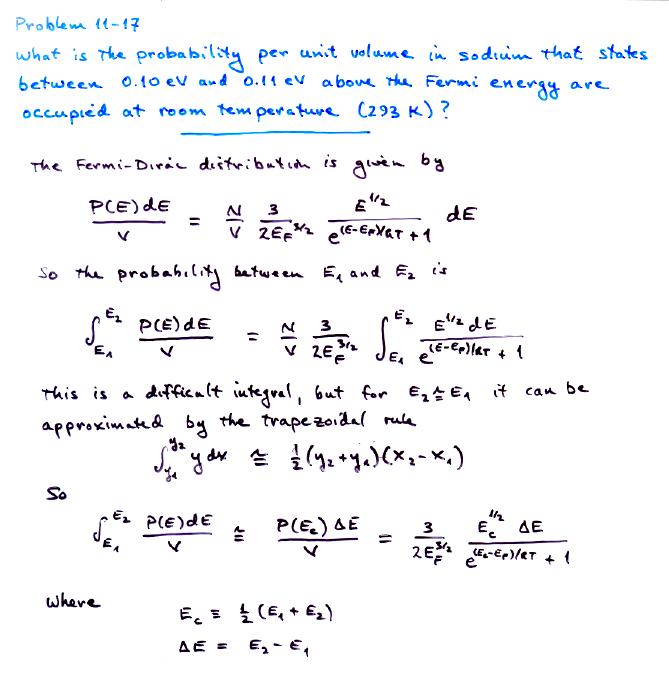 Problem 11-17
What is the probability per unit volume in sodium that states
between 0.10 eV and 0.11 eV above the Fermi energy are
occupied at room temperature (293 K)?
The Fermi-Dirac distribution is given by
P(E)dE/V = N/V 3/(2E_F^{3/2}) E^{1/2}/(e^{(E-E_F)/kT} + 1) dE
So the probability between E_1 and E_2 is
∫_{E_1}^{E_2} P(E)dE/V = N/V 3/(2E_F^{3/2}) ∫_{E_1}^{E_2} E^{1/2} dE/(e^{(E-E_F)/kT} + 1)
This is a difficult integral, but for E_2 ≅ E_1 it can be
approximated by the trapezoidal rule
∫_{y_1}^{y_2} y dx ≅ 1/2 (y_2 + y_1)(x_2 - x_1)
So
∫_{E_1}^{E_2} P(E)dE/V ≅ P(E_c) ΔE/V = 3/(2E_F^{3/2}) E_c^{1/2} ΔE/(e^{(E_c-E_F)/kT} + 1)
where
E_c ≡ 1/2 (E_1 + E_2)
ΔE = E_2 - E_1